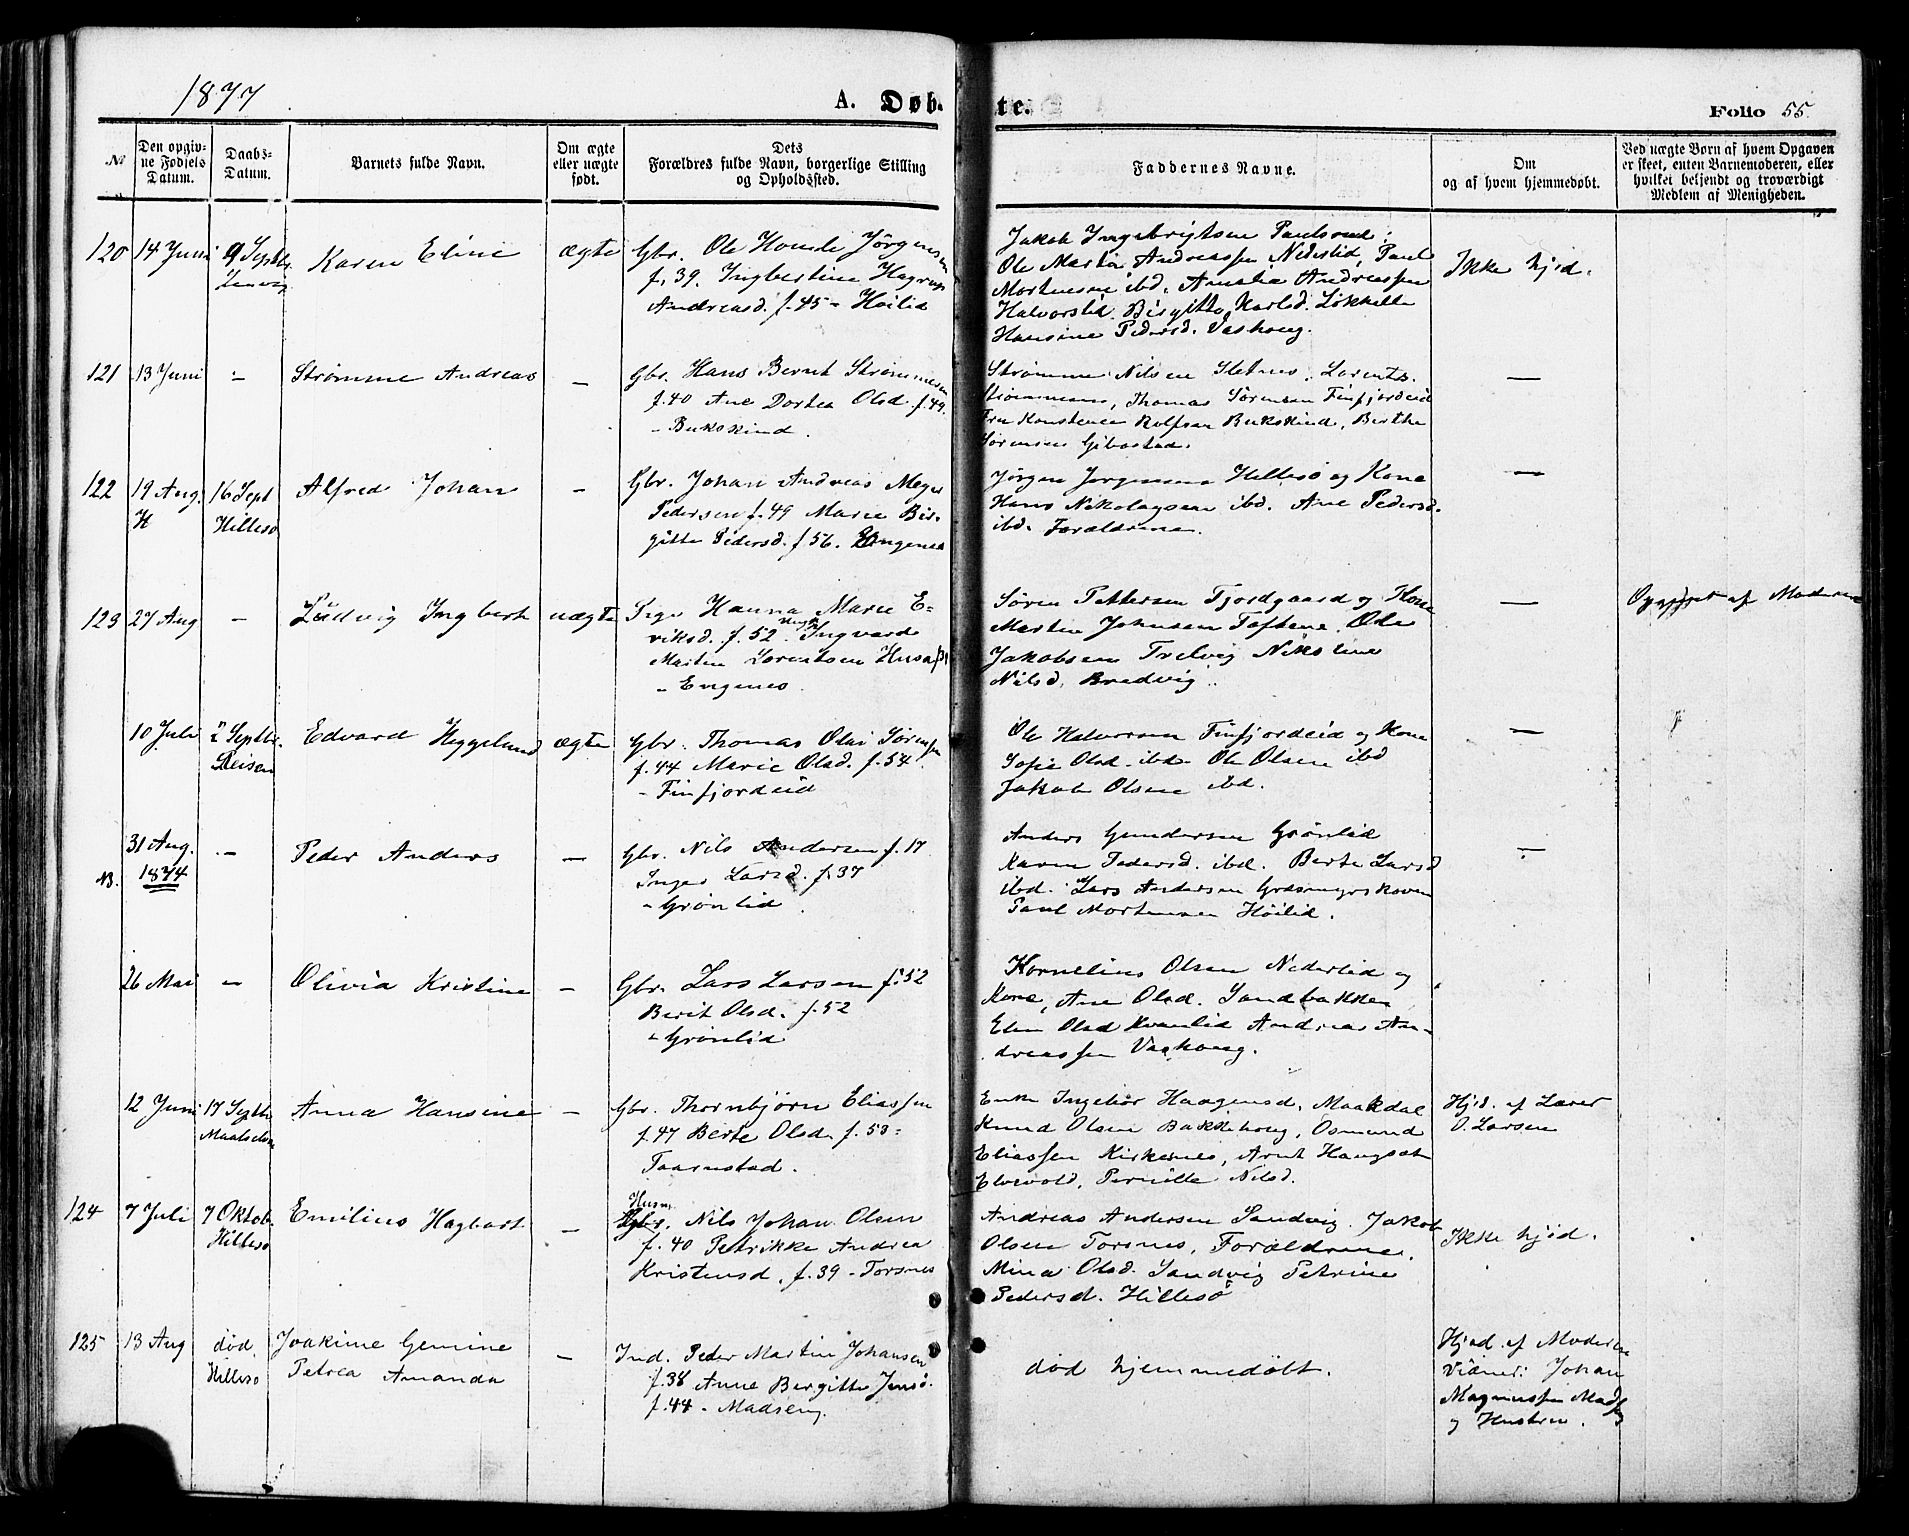 1877
A. Døb-
te.
Folio 55.
№
Den opgiv-
ne Fødsels
Datum.
Daabs-
Datum.
Barnets fulde Navn.
Om ægte
eller uægte
født.
Dets
Forældres fulde Navn, borgerlige Stilling
og Opholdssted.
Faddernes Navne.
Om
og af hvem hjemmedøbt.
Ved uægte Børn af hvem Opgaven
er skeet, enten Barnemoderen, eller
hvilket bekjendt og troværdigt
Medlem af Menigheden.
120
14 Juni
9 Septbr.
Lenvig
Karen Eline
ægte
Gbr. Ole Jørgensen
f. 39. Ingbertine
Andreasd. f. 45 - Høilid
Jakob Ingebrigtsen
Ole Martin Andreassen Nederlid, Paul
Mortensen ibd. Amalia Andreassen
Halvorslid. Birgitte Karlsd.
Hansine Pedersd. Vaskoug.
Ikke hjd.
121
13 Juni
-
Strømme Andreas
-
Gbr. Hans Bernt Strømmesen
f. 40 Ane Dortea Olsd. f. 49.
- Bukskind.
Strømme Nilsen Sletnes, Lorents
Strømmesen, Thomas Sørensen Finfjordeid
Fru Konstence Rolfsen Bukskind, Berthe
Sørensen Gibostad.
-
122
19 Aug.
H
16 Sept
Hillesø
Alfred Johan
-
Gbr. Johan Andreas Meyer
Pedersen f. 49 Marie Bir-
gitte Pedersd. f 56. Engenes
Jørgen Jørgensen Hillesø og Kone
Hans Nikolaysen ibd. Ane Pedersd.
ibd. Forældrene.
-
123
27 Aug
-
Ludvig Ingbert
uægte
Pige Hanna Marie E-
riksd. f. 52 Ingvard
Martin Lorentsen
- Engenes.
Søren Pettersen Fjordgaard og Kone
Martin Johnsen Toftene. Ole
Jakobsen Trelvig Nikoline
Nilsd. Bredvig.
-
Opgivet af Moderen
10 Juli
2 Septbr.
Reisen
Edvard Heggelund
ægte
Gbr. Thomas Olai Sørensen
f. 44 Marie Olsd. f. 54
- Finfjordeid
Ole Halvorsen Finfjordeid og Kone
Sofie Olsd. ibd. Ole Olsen ibd
Jakob Olsen ibd.
-
NB.
31 Aug.
1874
-
Peder Anders
-
Gbr. Nils Andersen f. 17
Inger Larsd. f. 37
- Grønlid.
Anders Gundersen Grønlid
Karen Pedersd. ibd. Berte Larsd
ibd. Lars Andersen Græsmyrskoven
Paul Mortensen Høilid.
-
26 Mai
-
Olivia Kristine
-
Gbr. Lars Larsen f. 52
Berit Olsd. f. 52
- Grønlid
Kornelius Olsen Nederlid og
Kone, Ane Olsd. Sandbakken
Elen Olsd Kvanlid Andrea An-
dreassen Vaskoug.
12 Juni
17 Septbr
Maalselven
Anna Hansine
-
Gbr. Thornbjørn Eliassen
f. 47 Berte Olsd. f. 53 -
Taarnstad.
Enke Ingebor Haagensd. Maakdal
Knud Olsen Bakkehoug, Osmund
Eliassen Kirkenes, Arnt Haugset
Elvevold, Pernille Nilsd.
Hjd. af Lærer
O. Larsen
124
7 Juli
7 Oktob.
Hillesø
Emilius Hagbart
-
Husm.
Nils Johan Olsen
f. 40 Petrikke Andrea
Kristensd. f. 39 - Torsnes
Andreas Andersen Sandvig. Jakob
Olsen Torsnes, Forældrene.
Mina Olsd. Sandvig Petrine
Pedersd. Hillesø
Ikke hjd.
125
13 Aug
død
Hillesø
Joakime Gemine
Petrea Amanda
-
Ind. Peder Martin Johansen
f. 38 Anne Bergitte Jensd.
f. 44 - Madseng.
død hjemmedøbt.
Hjd. af Moderen
Vidner: Johan
Magnussen
og Hustru.